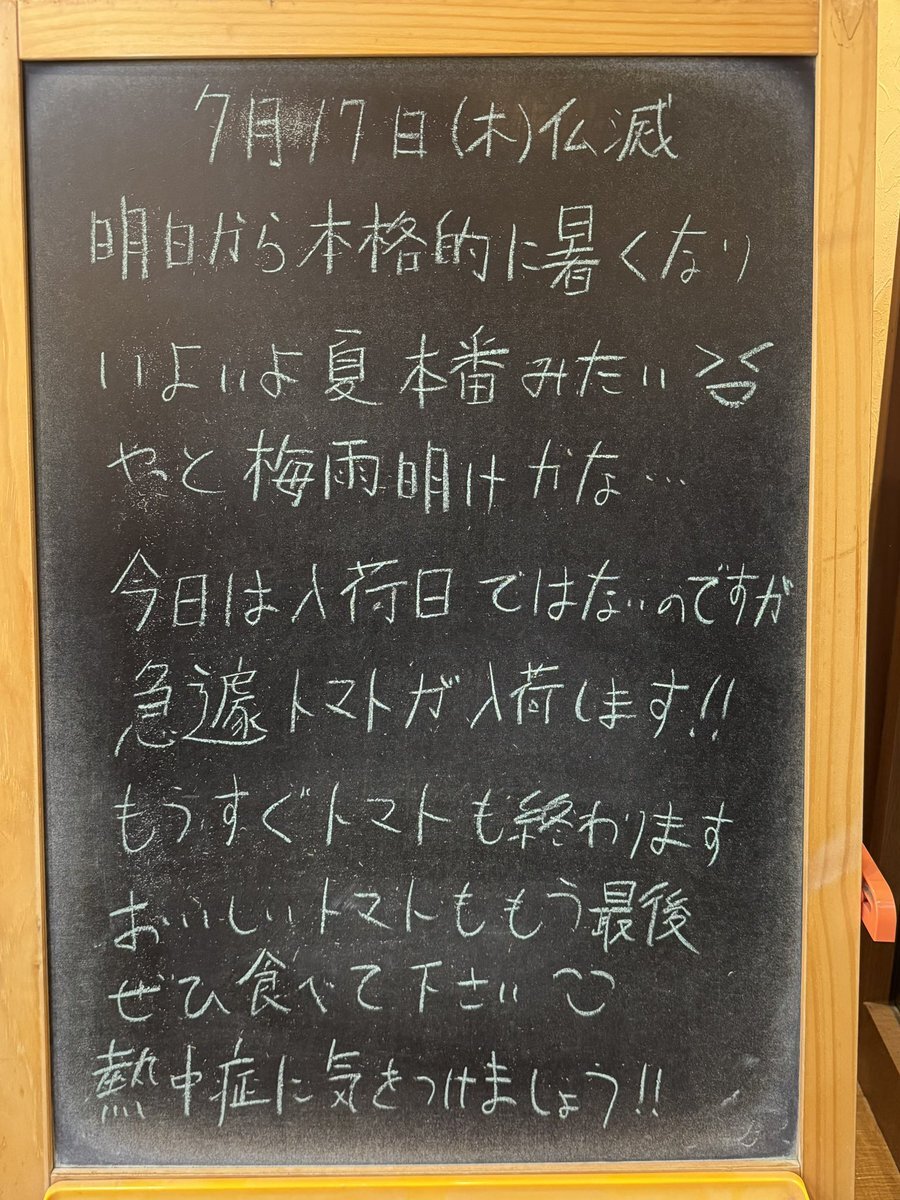 7月17日(木)仏滅
明日から本格的に暑くなり
いよいよ夏本番みたい
やっと梅雨明けかな…
今日は入荷日ではないのですが
急遽トマトが入荷します!!
もうすぐトマトも終わります
おいしいトマトももう最後
ぜひ食べて下さい
熱中症に気をつけましょう!!